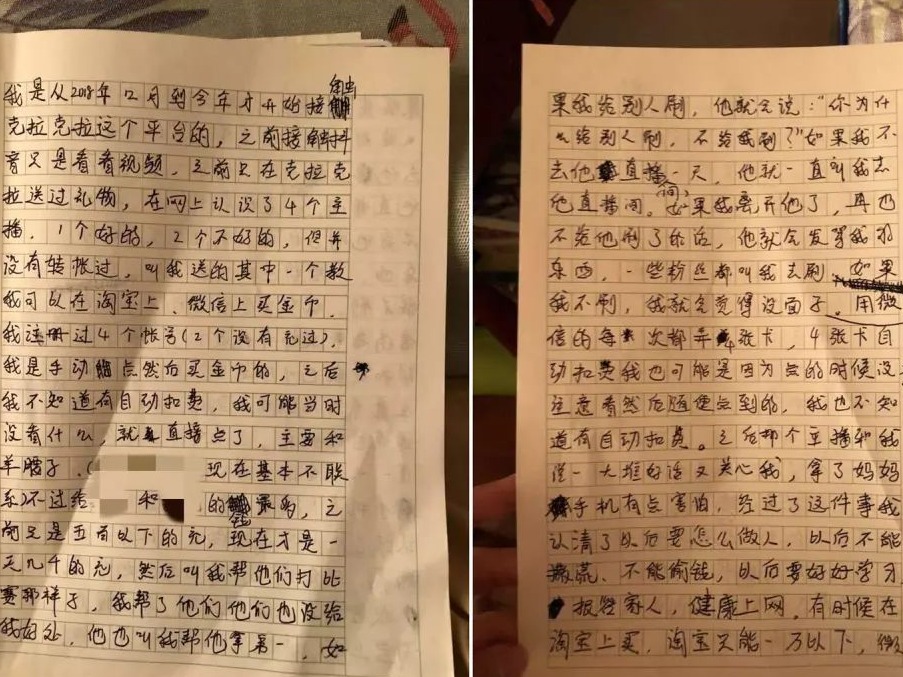 我是从2018年12月到今年才开始接触
克拉克拉这个平台的，之前接触抖
音只是看看视频，之前只在克拉克
拉送过礼物，在网上认识了4个主
播，1个好的，2个不好的，但并
没有转账过，叫我送的其中一个教
我可以在淘宝上、微信上买金币
我注册过4个帐号(2个没有充过)，
我是手动点然后买金币的，之后
我不知道有自动扣费，我可能当时
没看什么，就直接点了，主要和
羊腰子、(
现在基本不联
系)不过给
和
的钱最多，之
前只是五百以下的充，现在才是一
天几千的充，然后叫我帮他们打比
赛那样子，我帮了他们他们也没给
我好处，他也叫我帮他拿第一，如
果我给别人刷，他就会说："你为什
么给别人刷，不给我刷？"如果我不
去他直播一天，他就一直叫我去
他直播间，如果我离开他了，再也
不给他刷了的话，他就会发骂我的
东西，一些粉丝都叫我去刷 如果
我不刷，我就会觉得没面子，用微
信的每次都弄4张卡，4张卡自
动扣费我也可能是因为点的时候没
注意看然后随便点到的，我也不知
道有自动扣费。之后那个主播和我
说一大堆好话又关心我，拿了妈妈
手机有点害怕，经过了这件事我
认清了以后要怎么做人，以后不能
撒谎、不能偷钱，以后要好好学习
报答家人，健康上网。有时候在
淘宝上买，淘宝只能一万以下，微